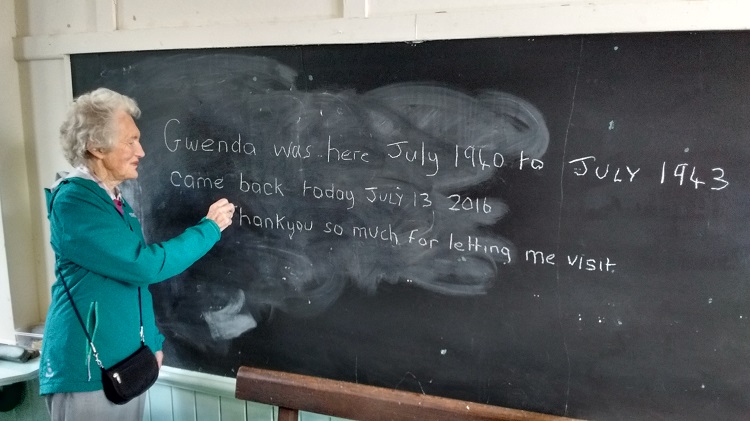 Gwenda was here July 1940 to JULY 1943
came back today JULY 13 2016
Thankyou so much for letting me visit.